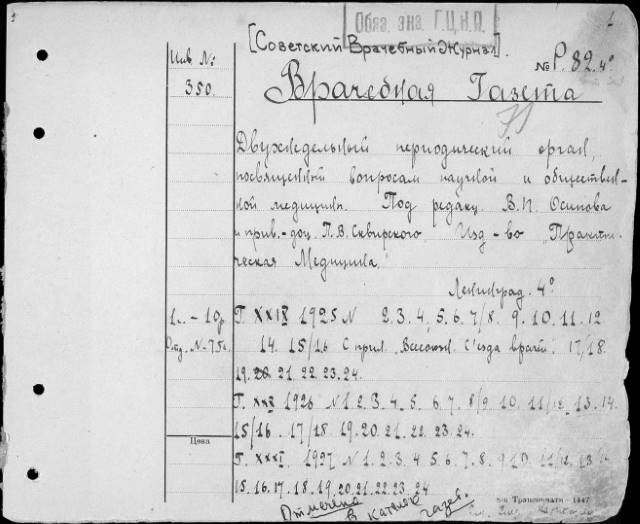 Обяз. экз. Г.Ц.К.П.
1
[Советский Врачебный Журнал].
Инв. №
№ Р. 82. 4°
350.
Врачебная Газета
Двухнедельный периодический орган,
посвященный вопросам научной и обществен-
ной медицины. Под редакц. В.П. Осипова
и прив.-доц. П.В. Сквирского. Изд-во "Практи-
ческая Медицина."
Ленинград. 4°
1 р.
Г. XXIX 1925 N 2. 3. 4. 5. 6. 7/8. 9. 10. 11. 12
Отд. N-75 к.
14. 15/16 С прил. Всесоюзн. С'езда врачей. 17/18.
19. 20 21. 22. 23. 24.
Г. XXX 1926 N 1. 2. 3. 4. 5. 6. 7. 8/9. 10. 11/12. 13. 14.
15/16. 17/18 19. 20. 21. 22. 23. 24.
Цена
Г. XXXI 1927 N 1. 2. 3. 4. 5. 6. 7. 8. 9. 10. 11/12. 13. 14
15. 16. 17. 18. 19. 20. 21. 22. 23. 24
Транспечати - 1447
Отмечена
в каталог
газет.